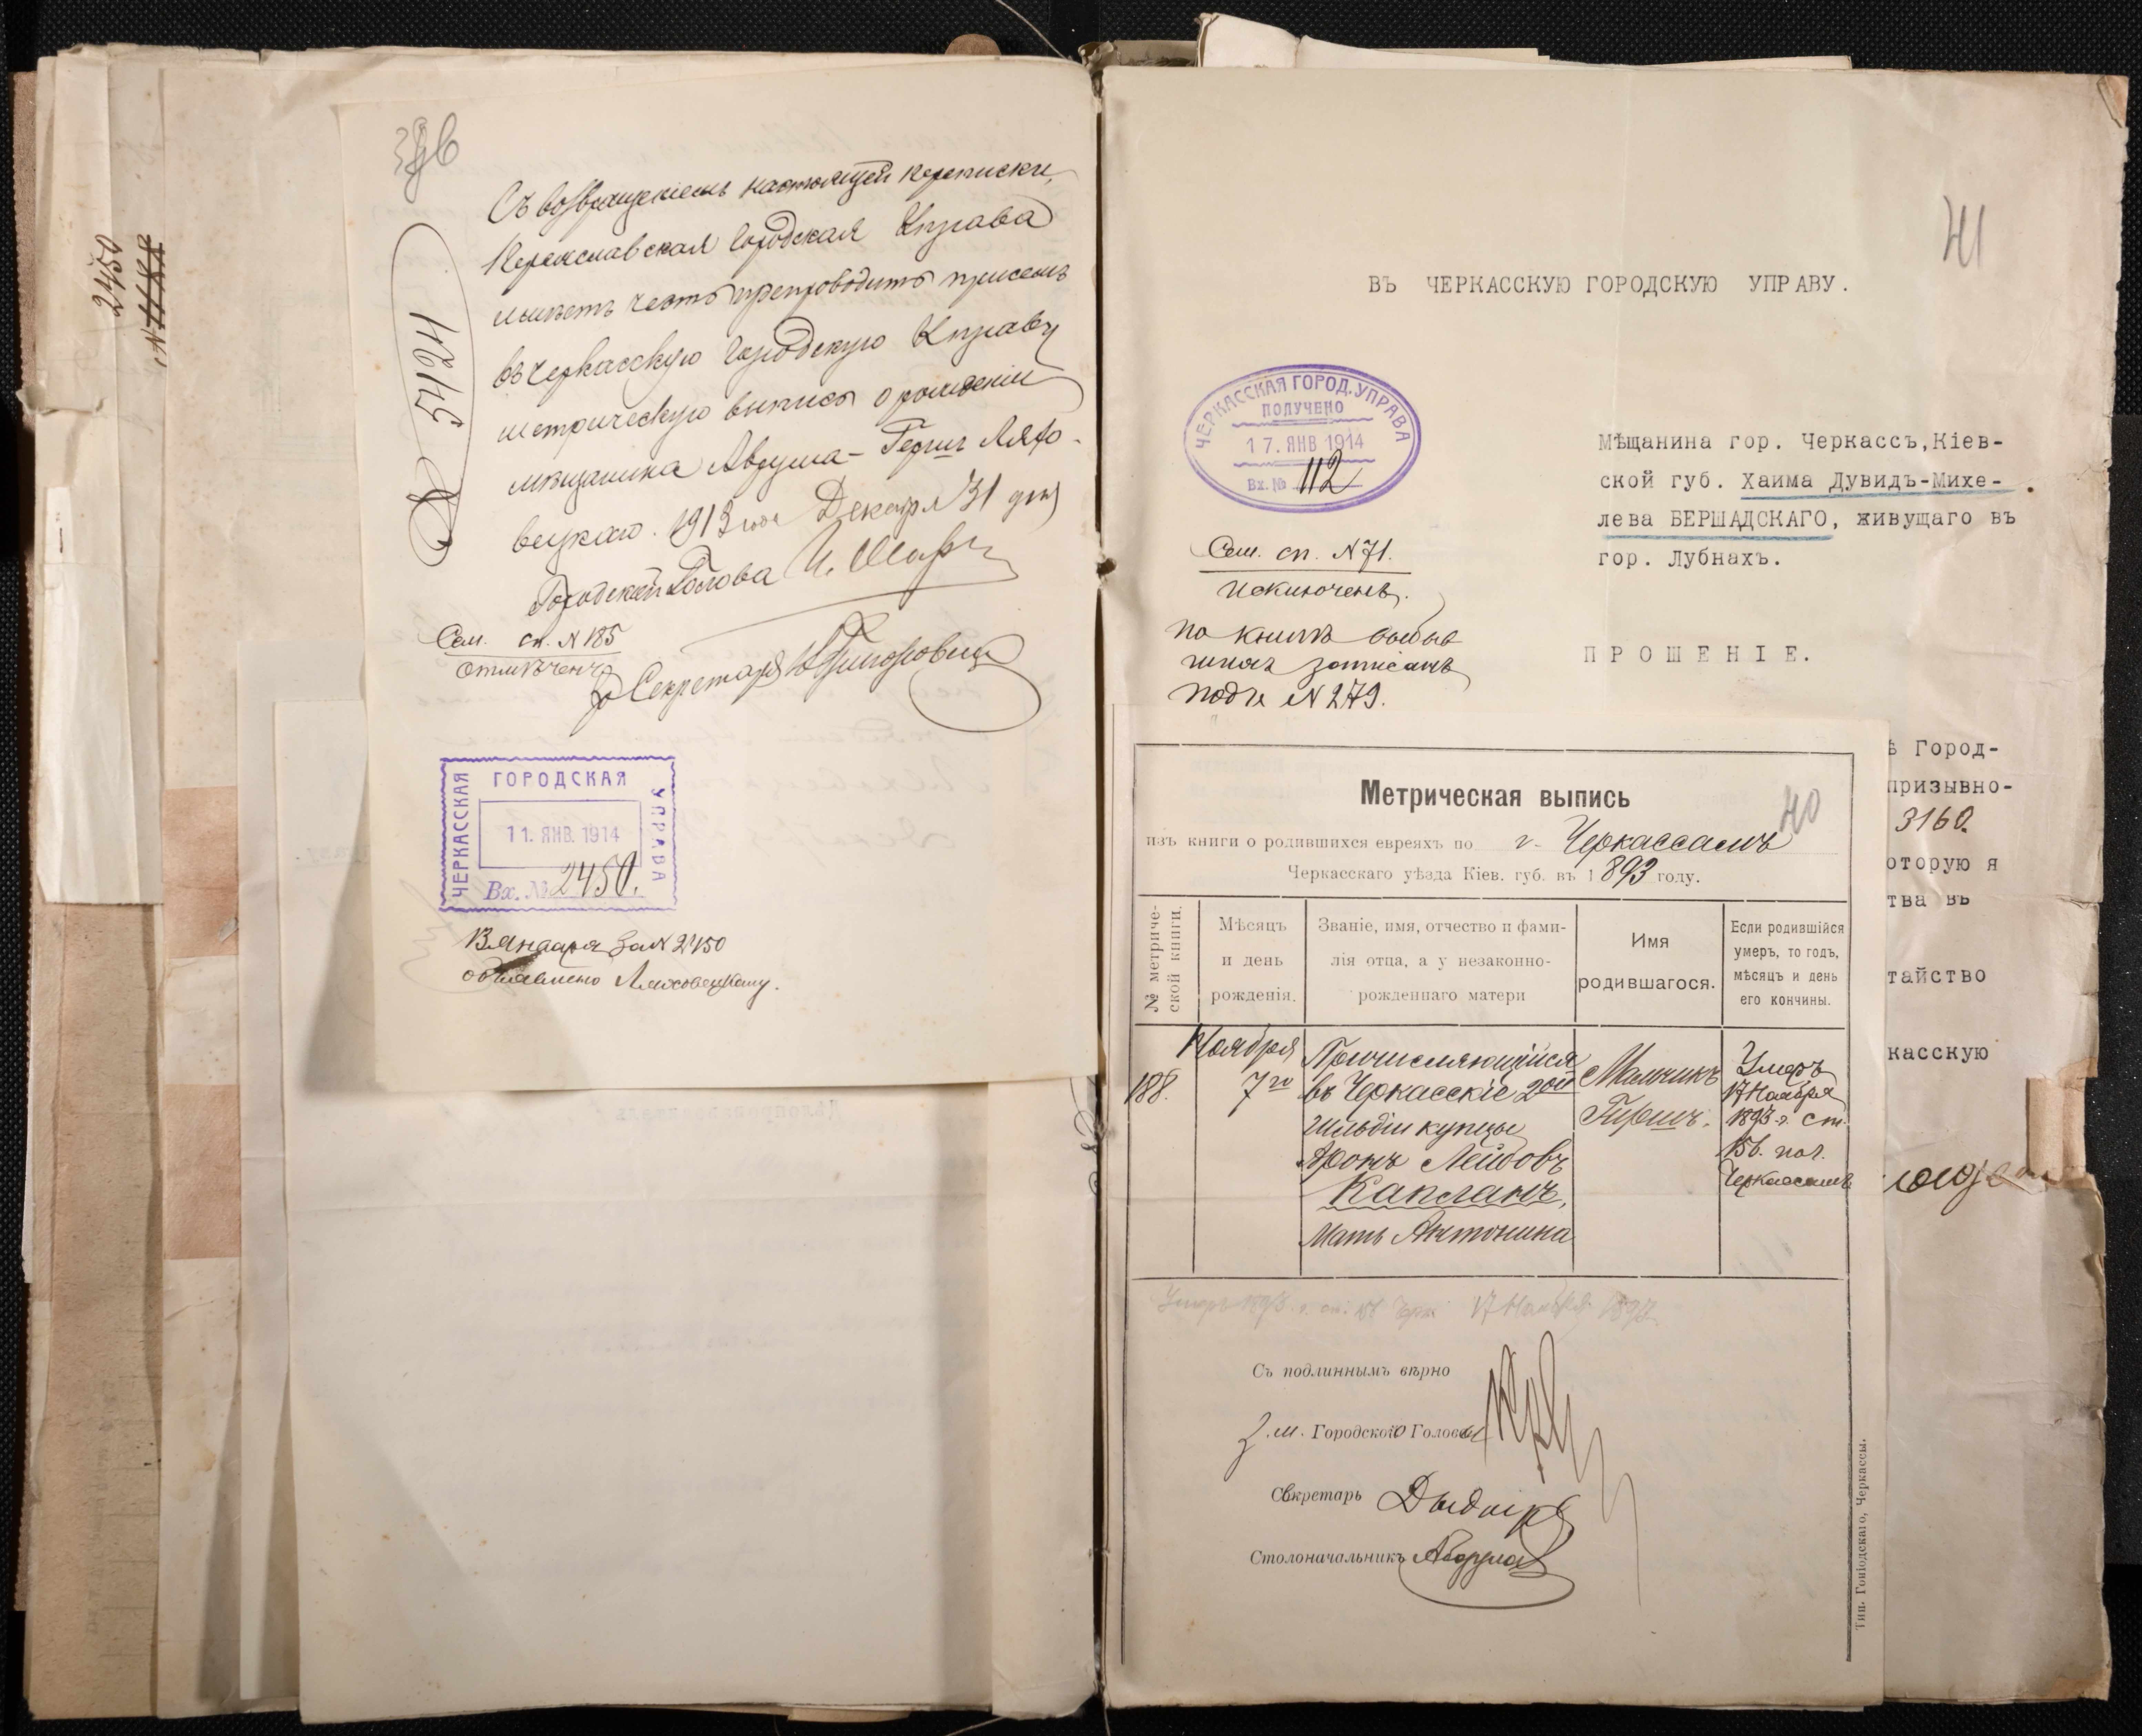 2450
39б
Съ возвращеніемъ настоящей переписки,
Переяславская Городская Управа
имѣетъ честь препроводить при семъ
въ Черкасскую Городскую Управу
метрическую выпись о рожденіи
мѣщанина Аврума-Герша Ляхо-
вецкаго. 1913 года Декабря 31 дня
Городской Голова
Секретарь
4245
Сем. сп. № 185
отмѣченъ
ЧЕРКАССКАЯ ГОРОДСКАЯ УПРАВА
11. ЯНВ. 1914
Вх. № 2450.
Января за № 2450
объявлено Ляховецкому.
41
ВЪ ЧЕРКАССКУЮ ГОРОДСКУЮ УПРАВУ.
ЧЕРКАССКАЯ ГОРОД. УПРАВА
ПОЛУЧЕНО
17. ЯНВ 1914
Вх. № 112
Мѣщанина гор. Черкассъ, Кіев-
ской губ. Хаима Дувидъ-Михе-
лева БЕРШАДСКАГО, живущаго въ
гор. Лубнахъ.
Сем. сп. № 71.
Исключенъ.
по книгѣ выбыв
шихъ записанъ
подъ № 279.
ПРОШЕНІЕ.
ѣ Город-
призывно-
3160.
оторую я
тва въ
тайство
касскую
40
Метрическая выпись
изъ книги о родившихся евреяхъ по г. Черкассамъ
Черкасскаго уѣзда Кіев. губ. въ 1893 году.
№ метриче-
ской книги.
Мѣсяцъ
и день
рожденія.
Званіе, имя, отчество и фами-
лія отца, а у незаконно-
рожденнаго матери
Имя
родившагося.
Если родившійся
умеръ, то годъ,
мѣсяцъ и день
его кончины.
188.
Ноября
7го
Причисляющійся
въ Черкасскіе 2ой
гильдіи купцы
Аронъ Лейбовъ
Капланъ,
мать Антонина
Мальчикъ
Гиршъ.
Умеръ
17 Ноября
1893 г. ст.
156. по г.
Черкассамъ
Умеръ 1893 г. ст. 156 Черк 17 Ноября 1893
Съ подлиннымъ вѣрно
З.м. Городского Головы
Секретарь
Столоначальникъ
Тип. Гоніодскаго, Черкассы.